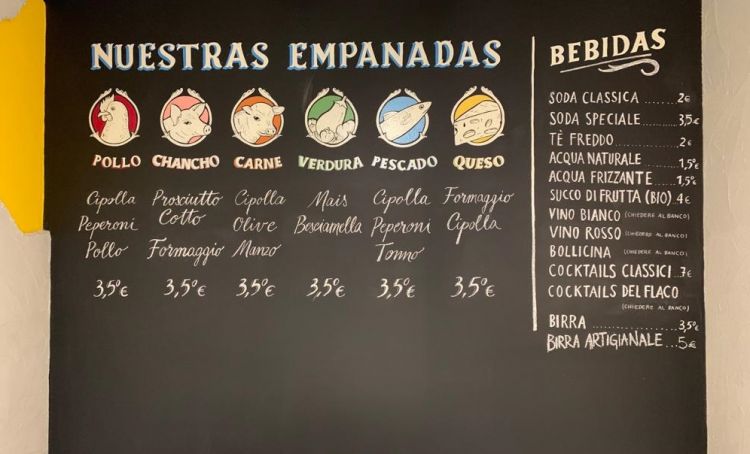 NUESTRAS EMPANADAS
POLLO
Cipolla
Peperoni
Pollo
3,5º€
CHANCHO
Prosciutto
Cotto
Formaggio
3,5º€
CARNE
Cipolla
Olive
Manzo
3,5º€
VERDURA
Mais
Besciamella
3,5º€
PESCADO
Cipolla
Peperoni
Tonno
3,5º€
QUESO
Formaggio
Cipolla
3,5º€
BEBIDAS
SODA CLASSICA ....... 2€
SODA SPECIALE ....... 3,5€
TÈ FREDDO ....... 2€
ACQUA NATURALE .... 1,5º€
ACQUA FRIZZANTE .... 1,5º€
SUCCO DI FRUTTA (BIO). 4€
VINO BIANCO (CHIEDERE AL BANCO)
VINO ROSSO (CHIEDERE AL BANCO)
BOLLICINA (CHIEDERE AL BANCO)
COCKTAILS CLASSICI .. 7€
COCKTAILS DEL FLACO
(CHIEDERE AL BANCO)
BIRRA ................ 3,5º€
BIRRA ARTIGIANALE ... 5€